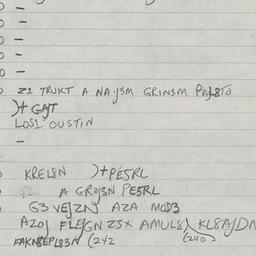 -
-
-
-
-
21 TRUKT A NA·J5M GRINSM PAJ8TO
)+ GAJT
LOS1 OUSTIN
-
KREL8N )+PE5RL
A GROJSN PE5RL
G3 VEJZN AZA MOD3
AZOJ FLEJGN ZSX AMUL8) KL8AJDN
FAKN8EPL83N (242 (240)